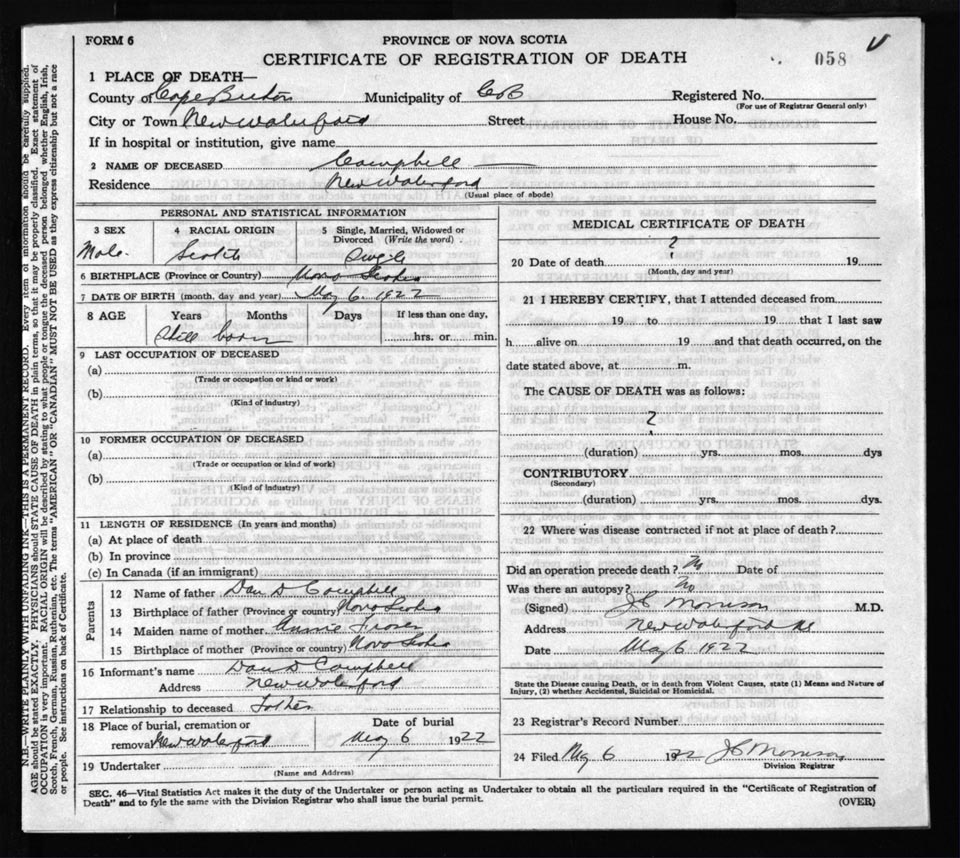 FORM 6
PROVINCE OF NOVA SCOTIA
CERTIFICATE OF REGISTRATION OF DEATH
058
1 PLACE OF DEATH—
County of Cape Breton Municipality of C of B Registered No.
(For use of Registrar General only)
City or Town New Waterford Street House No.
If in hospital or institution, give name
2 NAME OF DECEASED Campbell —
Residence New Waterford
(Usual place of abode)
PERSONAL AND STATISTICAL INFORMATION
3 SEX 4 RACIAL ORIGIN 5 Single, Married, Widowed or Divorced (Write the word)
Male Scotch Single
6 BIRTHPLACE (Province or Country) Nova Scotia
7 DATE OF BIRTH (month, day and year) May 6 1922
8 AGE Years Months Days If less than one day,
Still born hrs. or min.
9 LAST OCCUPATION OF DECEASED
(a)
(Trade or occupation or kind or work)
(b)
(Kind of industry)
10 FORMER OCCUPATION OF DECEASED
(a)
(Trade or occupation or kind or work)
(b)
(Kind of industry)
11 LENGTH OF RESIDENCE (In years and months)
(a) At place of death
(b) In province
(c) In Canada (if an immigrant)
Parents
12 Name of father Dan D Campbell
13 Birthplace of father (Province or country) Nova Scotia
14 Maiden name of mother Annie
15 Birthplace of mother (Province or country) Nova Scotia
16 Informant's name Dan D Campbell
Address New Waterford
17 Relationship to deceased Father
18 Place of burial, cremation or removal New Waterford
Date of burial
May 6 1922
19 Undertaker
(Name and Address)
MEDICAL CERTIFICATE OF DEATH
20 Date of death ? 19
(Month, day and year)
21 I HEREBY CERTIFY, that I attended deceased from
19 to 19 that I last saw
h alive on 19 and that death occurred, on the
date stated above, at m.
The CAUSE OF DEATH was as follows:
?
(duration) yrs. mos. dys
CONTRIBUTORY
(Secondary)
(duration) yrs. mos. dys.
22 Where was disease contracted if not at place of death?
Did an operation precede death? No Date of
Was there an autopsy? No
(Signed) J C Morrison M.D.
Address New Waterford NS
Date May 6 1922
State the Disease causing Death, or in death from Violent Causes, state (1) Means and Nature of
Injury, (2) whether Accidental, Suicidal or Homicidal.
23 Registrar's Record Number
24 Filed May 6 1922 J C Morrison
Division Registrar
SEC. 46—Vital Statistics Act makes it the duty of the Undertaker or person acting as Undertaker to obtain all the particulars required in the "Certificate of Registration of
Death" and to fyle the same with the Division Registrar who shall issue the burial permit.
(OVER)
N.B.—WRITE PLAINLY WITH UNFADING INK—THIS IS A PERMANENT RECORD. Every item of information should be carefully supplied.
AGE should be stated EXACTLY. PHYSICIANS should STATE CAUSE OF DEATH in plain terms, so that it may be properly classified. Exact statement of
OCCUPATION is very important. RACIAL ORIGIN will be described by stating to what people or tongue the deceased person belonged, whether English, Irish,
Scotch, French, German, Russian, Ruthenian, etc. The terms "AMERICAN" OR "CANADIAN" MUST NOT BE USED as they express citizenship but not a race
or people. See instructions on back of Certificate.